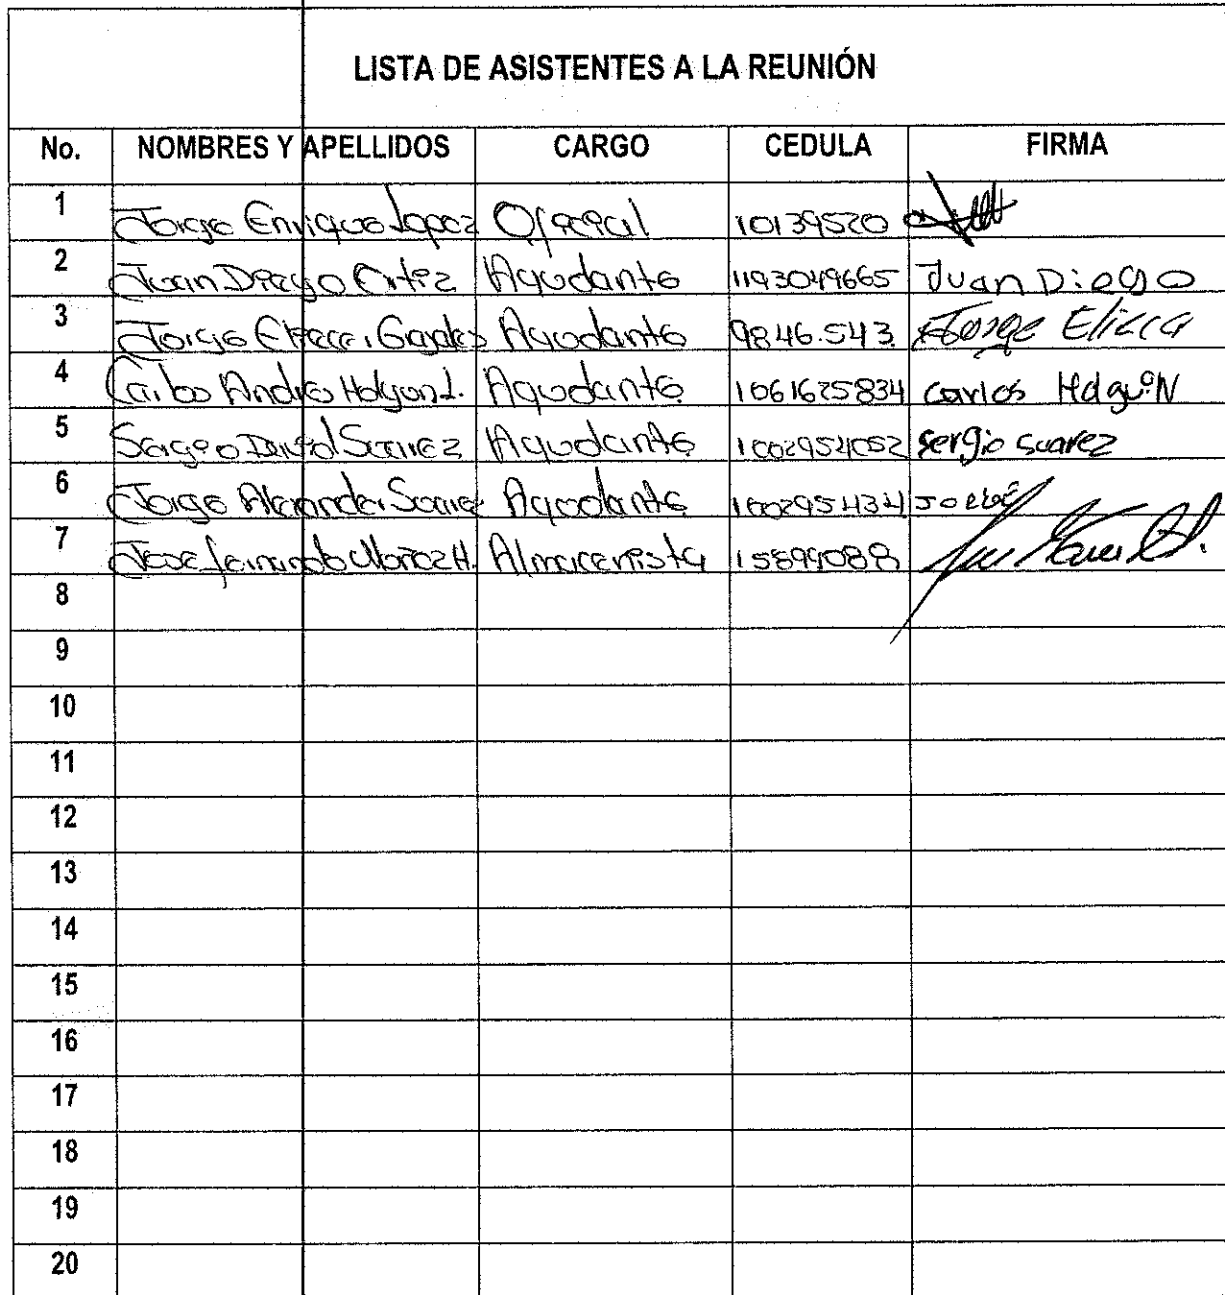 LISTA DE ASISTENTES A LA REUNIÓN
No. NOMBRES Y APELLIDOS CARGO CEDULA FIRMA
1 Jorge Enrique Lopez Oficial 10139520
2 Juan Diego Ortiz Ayudante 1193049665 Juan Diego
3 Jorge Eliecer Ayudante 9846.543 Jorge Eliecer
4 Carlos Andres Holguin L. Ayudante 1061625834 Carlos Holguin
5 Sergio David Suarez Ayudante 1002954052 Sergio suarez
6 Jorge Alexander Suarez Ayudante 100295434
7 Jose fernando Muñoz H. Almacenista 15899088
8
9
10
11
12
13
14
15
16
17
18
19
20